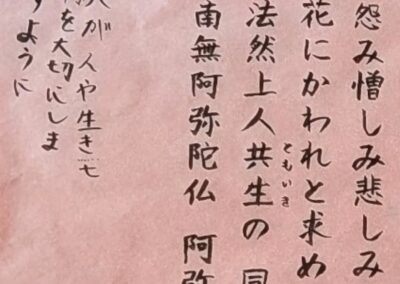 怨み憎しみ悲しみ
花にかわれと求め
法然上人共生の同
ともいき
南無阿弥陀仏 阿弥
が人や生き七
を大切にしま
ように